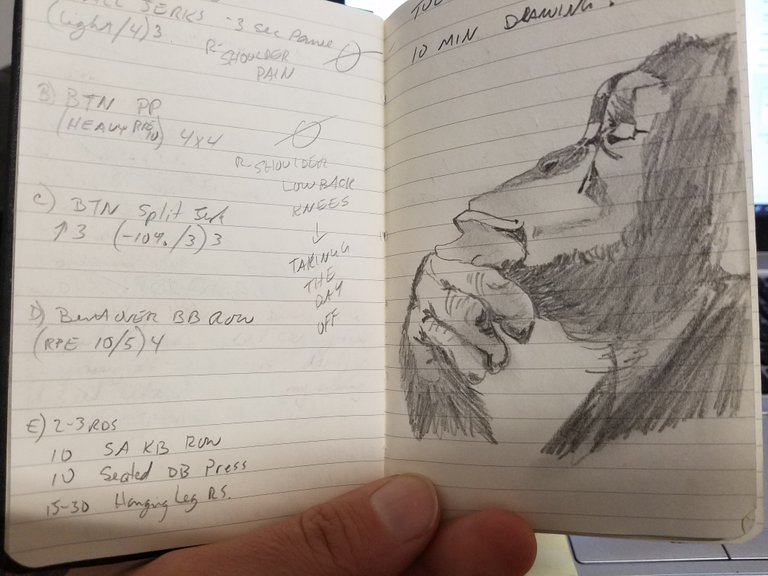 JERKS - 3 sec Pause
(Light/4)3
R-SHOULDER
PAIN
B) BTN PP
(HEAVY RPE 10) 4x4
R-SHOULDER
LOW BACK
KNEES
↓
TAKING
THE
DAY
OFF
C) BTN Split Jerk
↑3 (-10%/3)3
D) Bent OVER BB Row
(RPE 10/5)4
E) 2-3 RDS
10 SA KB Row
10 Seated DB Press
15-30 Hanging Leg RS.
10 MIN DRAWING!